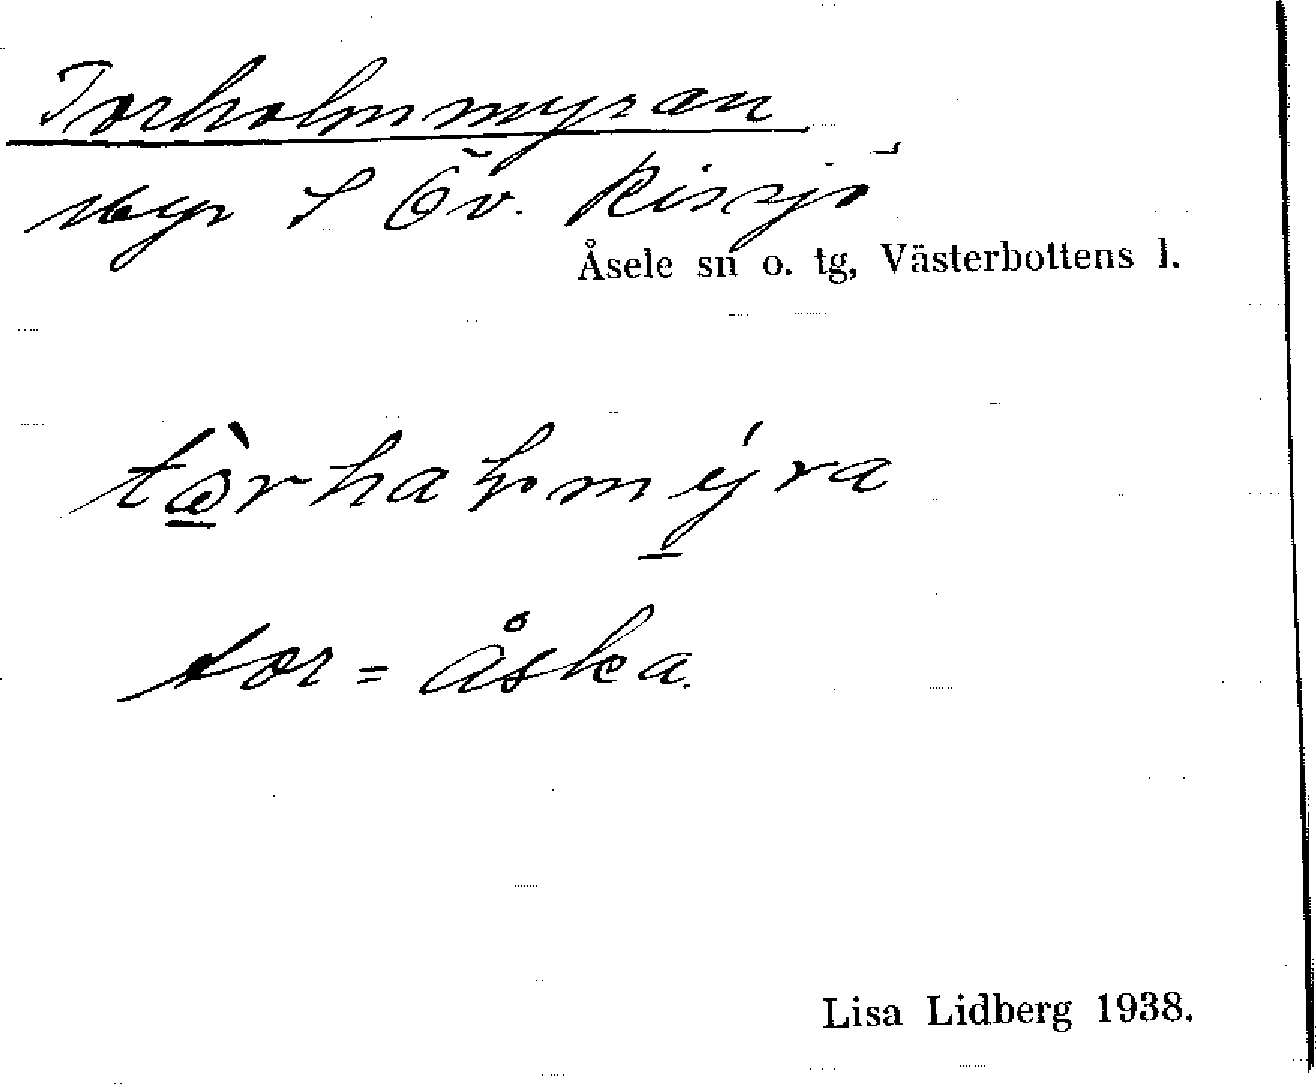 Torholmmyran
Myr S Öv. Rissjö
Åsele sn o. tg, Västerbottens l.
tòrhaḷmmýra
tor = åska.
Lisa Lidberg 1938.